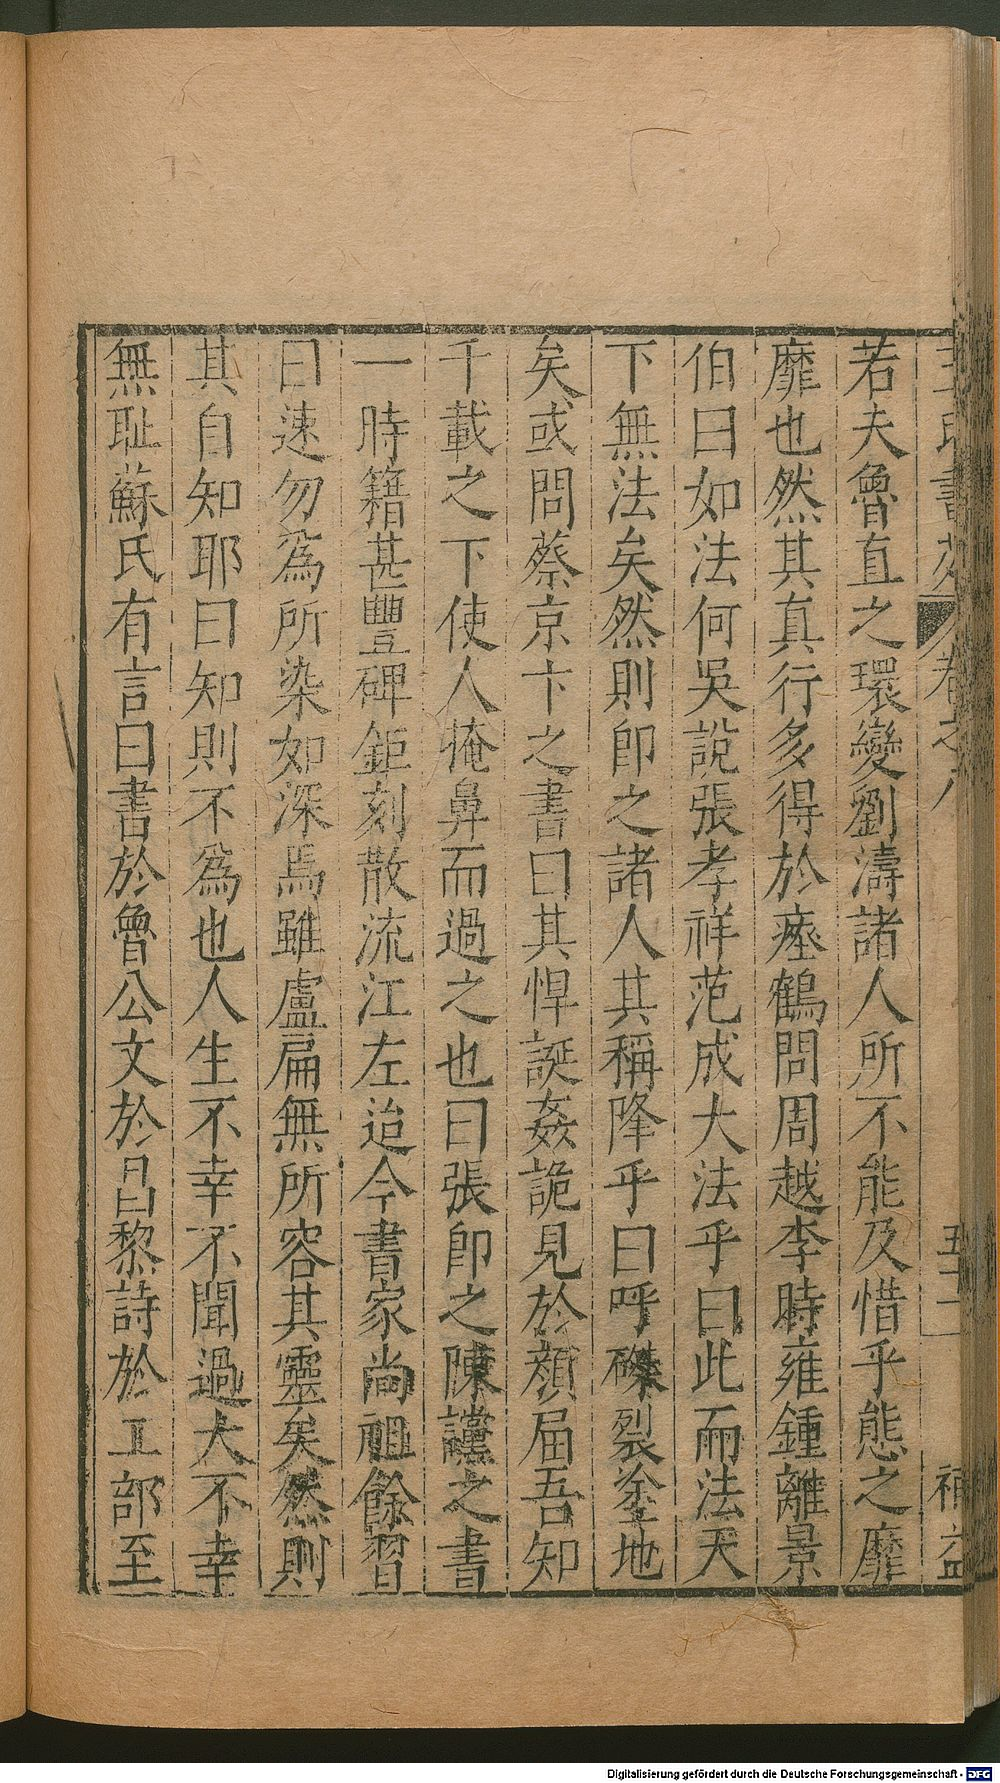 王氏書苑 卷之八 五十一 補益
若夫魯直之環變劉濤諸人所不能及惜乎態之靡
靡也然其真行多得於瘞鶴問周越李時雍鍾離景
伯曰如法何吳說張孝祥范成大法乎曰此而法天
下無法矣然則卽之諸人其稱降乎曰呼磔裂塗地
矣或問蔡京卞之書曰其悍誕姦詭見於顏眉吾知
千載之下使人掩鼻而過之也曰張卽之陳讜之書
一時籍甚豐碑鉅刻散流江左迨今書家尚祖餘習
曰速勿爲所染如深焉雖盧扁無所容其靈矣然則
其自知耶曰知則不爲也人生不幸不聞過大不幸
無耻蘇氏有言曰書於魯公文於昌黎詩於工部至
Digitalisierung gefördert durch die Deutsche Forschungsgemeinschaft - DFG